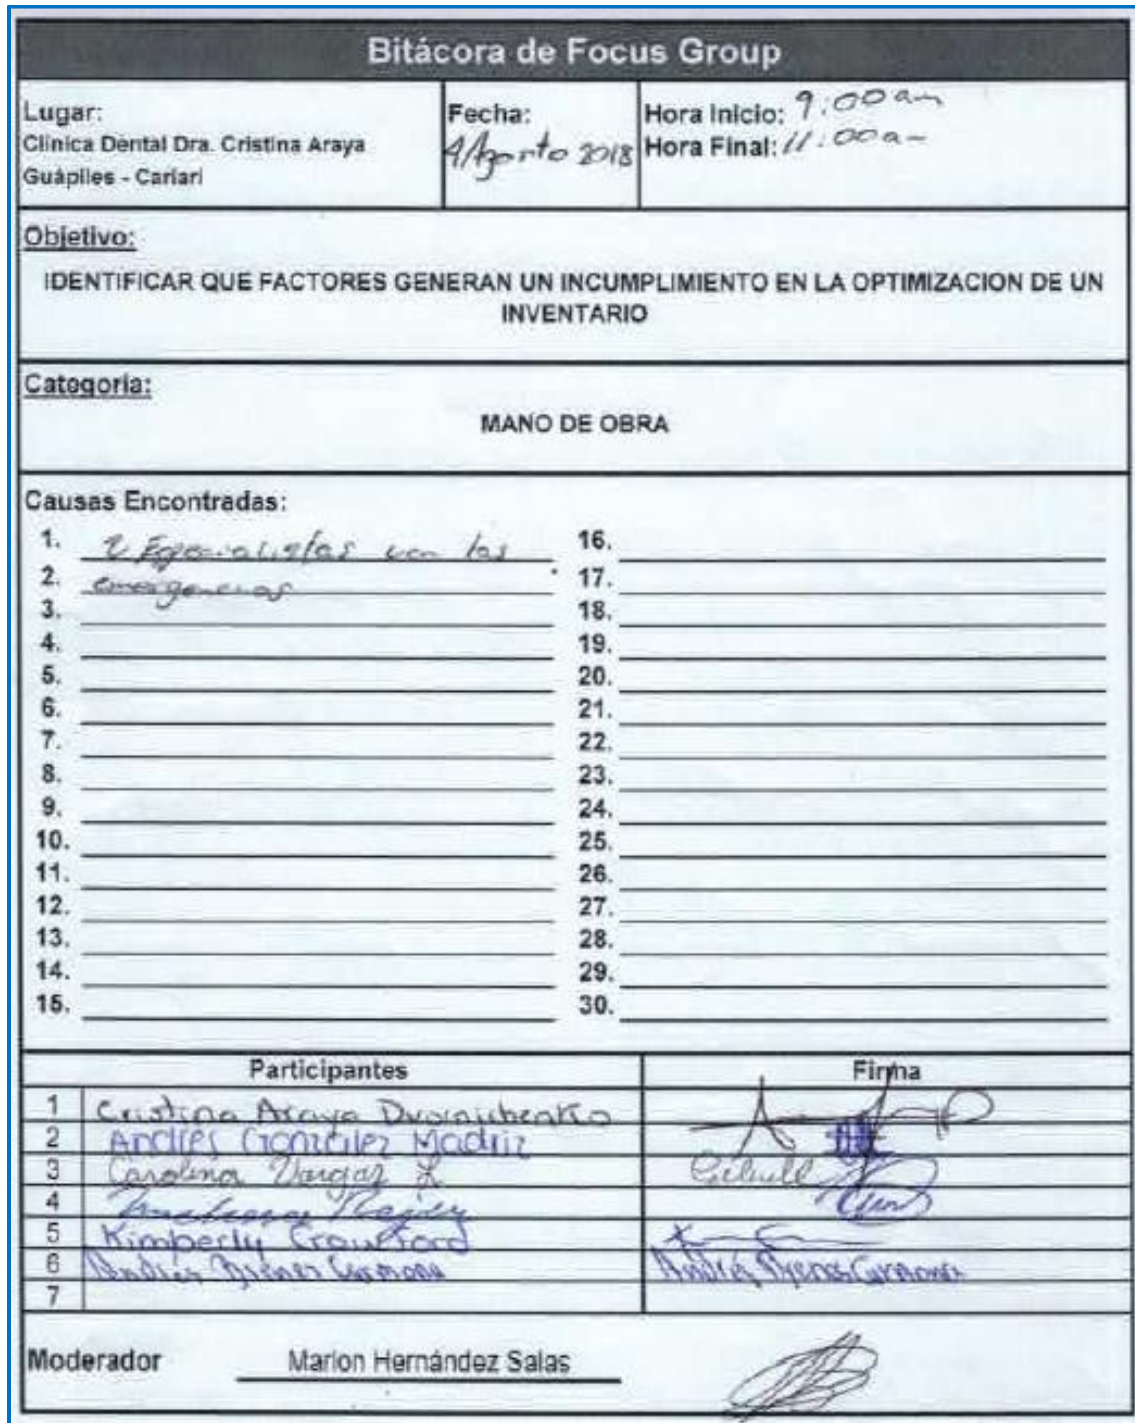 Bitácora de Focus Group
Lugar:
Clinica Dental Dra. Cristina Araya
Guápiles - Cariari
Fecha:
4/Agosto 2018
Hora Inicio: 9:00am
Hora Final: 11:00a-
Objetivo:
IDENTIFICAR QUE FACTORES GENERAN UN INCUMPLIMIENTO EN LA OPTIMIZACION DE UN
INVENTARIO
Categoria:
MANO DE OBRA
Causas Encontradas:
1. Especialistas las
2. emergencias
3.
4.
5.
6.
7.
8.
9.
10.
11.
12.
13.
14.
15.
16.
17.
18.
19.
20.
21.
22.
23.
24.
25.
26.
27.
28.
29.
30.
Participantes Firma
1 Cristina Araya
2 Andrés González Madriz
3 Carolina Vargas L
4
5 Kimberly Crawford
6 Andrés Carmona Andrés Carmona
7
Moderador Marlon Hernández Salas